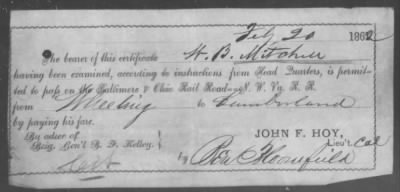 Feby 20 1862
The bearer of this certificate W. B. Mitchell
having been examined, according to instructions from Head Quarters, is permit-
ted to pass on the Baltimore & Ohio Rail Road and N. W. Va. R. R.
from Wheeling to Cumberland
by paying his fare.
By order of
Brig. Gen'l B. F. Kelley.
JOHN F. HOY,
Lieut. Col
By